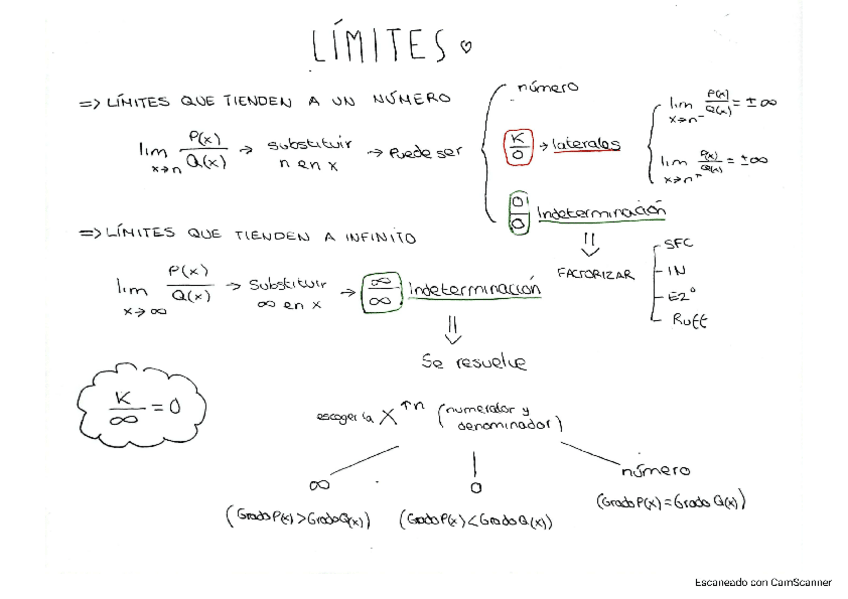 LÍMITES
=> LÍMITES QUE TIENDEN A UN NÚMERO
lim x→n P(x)/Q(x) → substituir n en x → Puede ser
número
K/0 → laterales
lim x→n⁻ P(x)/Q(x) = ± ∞
lim x→n⁺ P(x)/Q(x) = ± ∞
0/0 Indeterminación
⇓
FACTORIZAR
SFC
IN
E2º
Ruff
=> LÍMITES QUE TIENDEN A INFINITO
lim x→∞ P(x)/Q(x) → Substituir ∞ en x → ∞/∞ Indeterminación
⇓
Se resuelve
K/∞ = 0
escoger la X ↑n (numerator y denominador)
∞
(Grado P(x) > Grado Q(x))
0
(Grado P(x) < Grado Q(x))
número
(Grado P(x) = Grado Q(x))
Escaneado con CamScanner